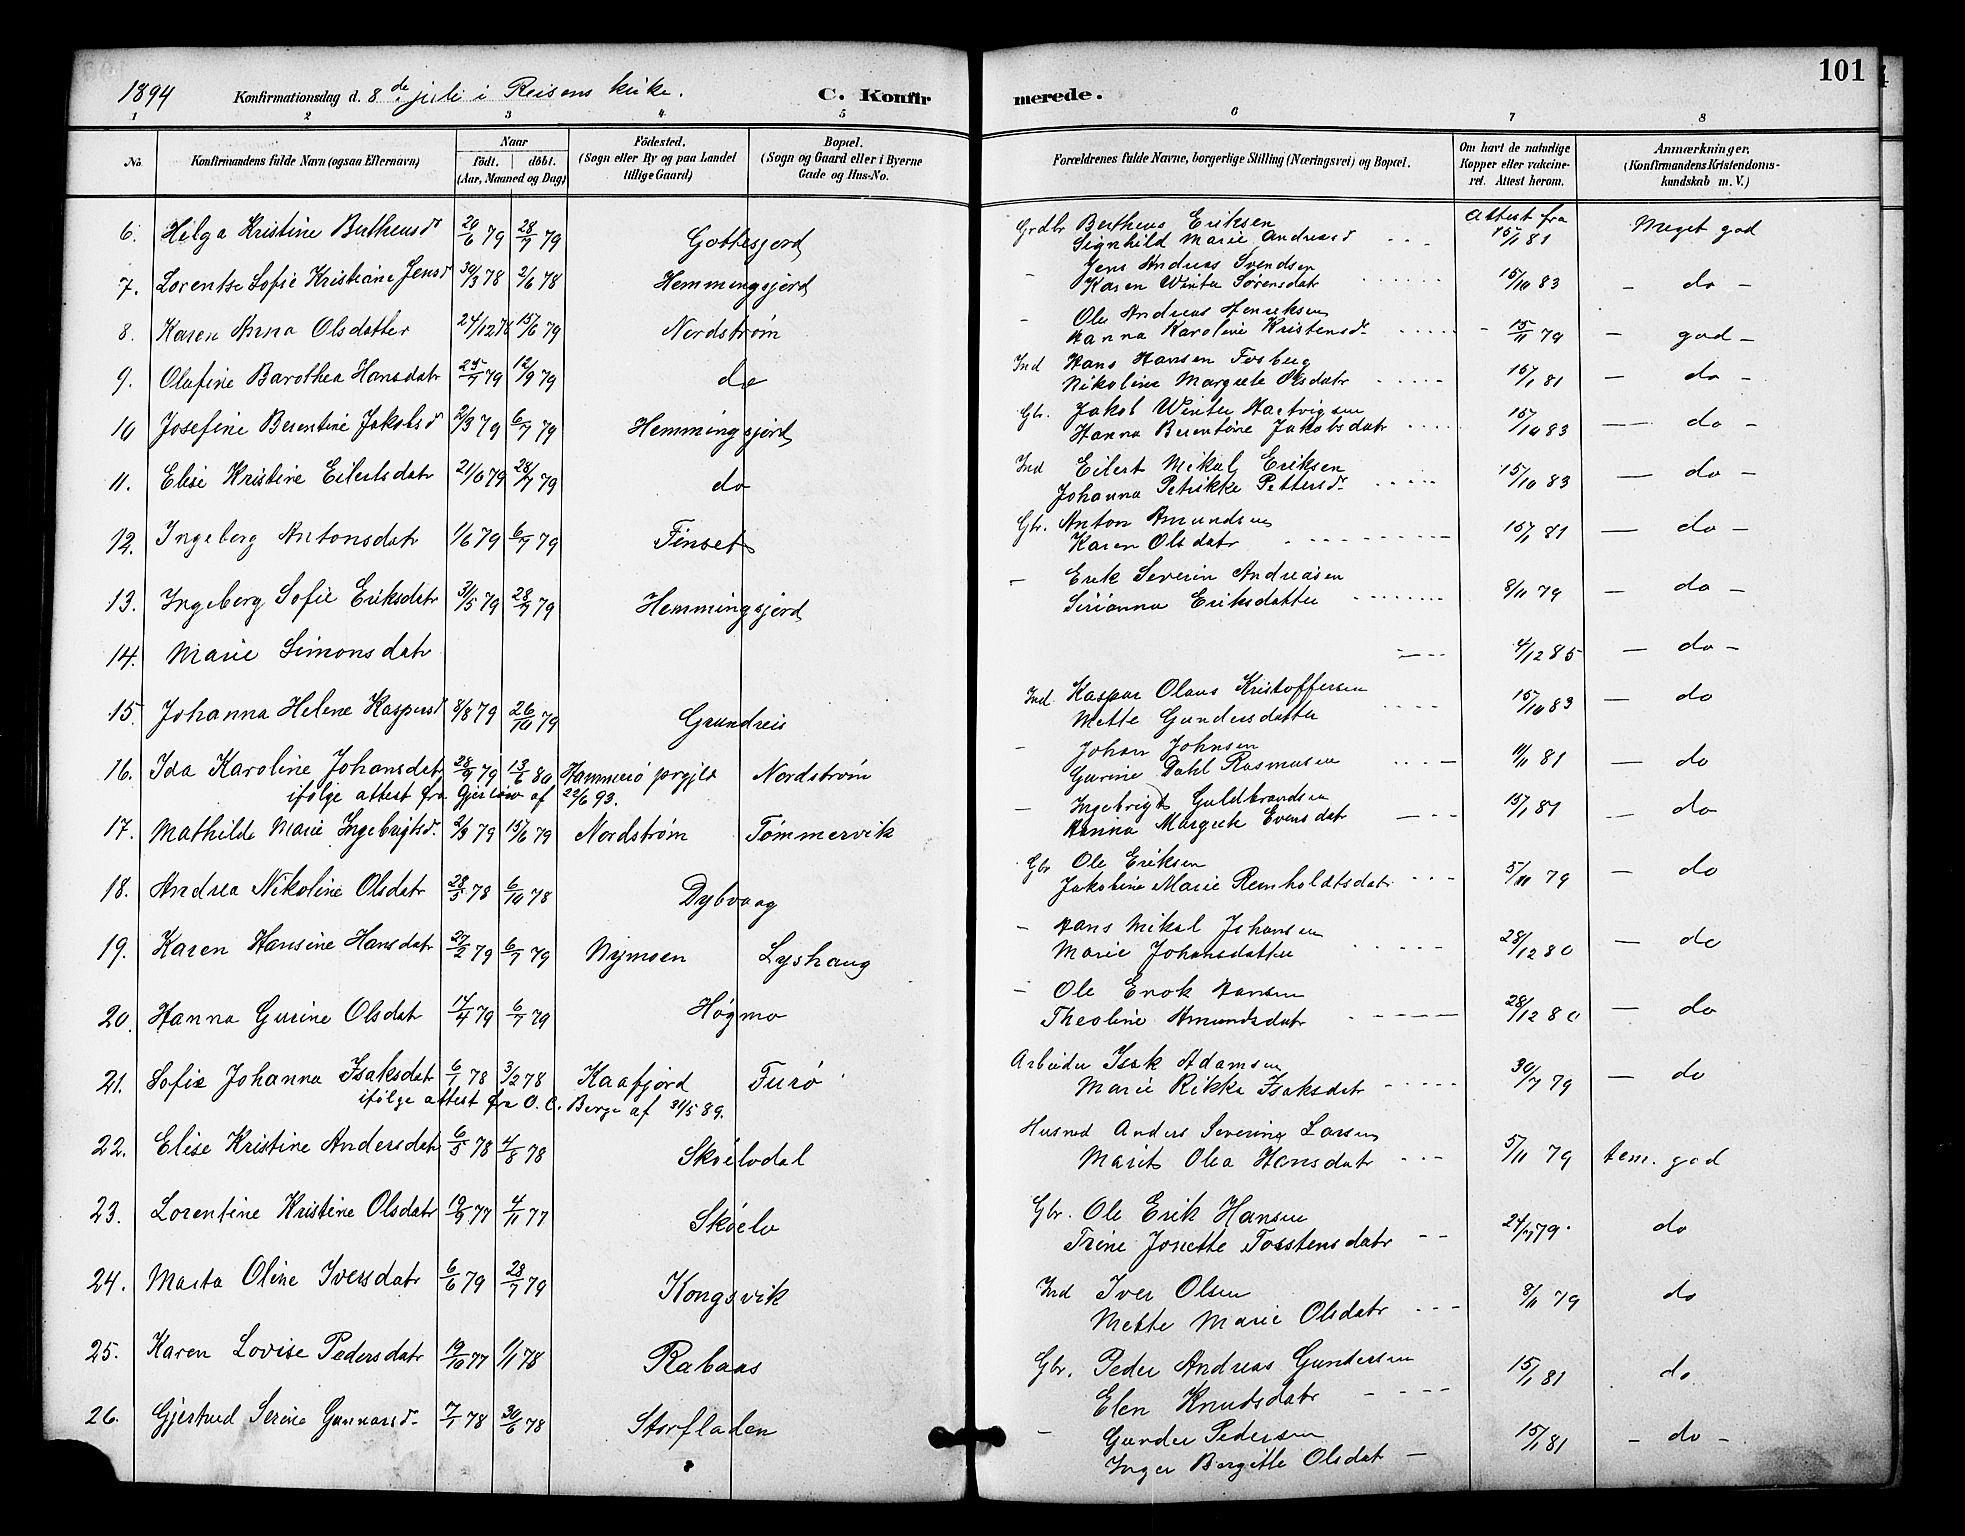 101
1894 Konfirmationsdag d. 8de juli i Reisens kirke. C. Konfirmerede.
1 2 3 4 5 6 7 8
No. Konfirmandens fulde Navn (ogsaa Efternavn) Naar født. døbt. (Aar, Maaned og Dag) Fødested. (Sogn eller By og paa Landet tillige Gaard) Bopæl. (Sogn og Gaard eller i Byerne Gade og Hus-No. Forældrenes fulde Navne, borgerlige Stilling (Næringsvei) og Bopæl. Om havt de naturlige Kopper eller vaccineret. Attest herom. Anmærkninger, (Konfirmandens Kristendomskundskab m. V.)
6. Helga Kristine Bertheusdr 20/6 79 28/7 79 Gottesjord Grdbr Bertheus Eriksen Attest fra 15/1 81 Meget god
Signhild Marie Andreasd
7. Lorentse Sofie Kristiane Jensd 30/3 78 2/6 78 Hemmingsjord - Jens Andreas Svendsen 15/10 83 - do -
Karen Winter Sørensdatr
8. Karen Anna Olsdatter 24/12 78 15/6 79 Nordstrøm - Ole Andreas Henriksen 15/11 79 - god -
Hanna Karoline Kristensdr
9. Olufine Barothea Hansdatr 25/7 79 12/9 79 do Ind Hans Hansen Fosberg 15/1 81 - do -
Nikoline Margrete Olsdatr
10 Josefine Berentine Jakobsd 2/3 79 6/7 79 Hemmingsjord Gbr. Jakob Winter Hartvigsen 15/10 83 - do -
Hanna Berentine Jakobsdatr
11. Elise Kristine Eilertsdatr 21/6 79 28/7 79 do Ind Eilert Mikal Eriksen 15/10 83 - do -
Johanna Petrikke Pettersdr
12. Ingeborg Antonsdatr 1/6 79 6/7 79 Finset Gbr. Anton Amundsen 15/1 81 - do -
Karen Olsdatr
13. Ingeborg Sofie Eriksdatr 31/5 79 28/7 79 Hemmingsjord - Erik Severin Andreasen 8/11 79 - do -
Sirianna Eriksdatter
14. Marie Simonsdatr 4/12 85 - do -
15. Johanna Helene Kaspersd 8/8 79 26/10 79 Grundreis Ind Kaspar Olaus Kristoffersen 15/10 83 - do
Mette Gundersdatter
16. Ida Karoline Johansdatr 28/9 79 13/6 80 Hammerø prgjld Nordstrøm - Johan Johnsen 11/11 81 - do
Gurine Dahl Rasmusen
ifølge attest fra Gjerløw af 22/6 93.
17. Mathilde Marie Ingebrigtsd. 2/3 79 15/6 79 Nordstrøm Tømmervik - Ingebrigt Guldbrandsen 15/1 81 - do
Anna Margrete Evensdatr
18. Andrea Nikoline Olsdatr 28/5 78 6/10 78 Dybvaag Gbr Ole Eriksen 5/11 79 - do
Jakobine Marie Reinholdtsdatr
19. Karen Hansine Hansdatr 27/2 79 6/7 79 Nymoen Lyshaug - Hans Mikal Johansen 28/12 80 - do
Marie Johansdatter
20. Hanna Gurine Olsdatr 14/4 79 6/7 79 Høgmo - Ole Enok Hansen 28/12 80 - do
Theoline Amundsdatr
21. Sofie Johanna Isaksdatr 6/1 78 3/2 78 Kaafjord Furø Arbeider Isak Adamsen 30/7 79 - do
Marie Rikka Isaksdatr
ifølge attest fra O. C. Berge af 31/5 89.
22. Elise Kristine Andersdatr 6/5 78 4/8 78 Skøelvdal Husmd Anders Severin Larsen 5/11 79 tem. god
Marit Olea Hansdatr
23. Lorentine Kristine Olsdatr 19/9 77 4/11 77 Skøelv Gbr. Ole Erik Hansen 24/7 79 do
Trine Jonette Torstensdatr
24. Marta Oline Iversdatr 6/6 79 28/7 79 Kongsvik Ind Iver Olsen 8/11 79 do
Mette Marie Olsdatr
25. Karen Lovise Pedersdatr 19/10 77 1/1 78 Rabaas Gbr. Peder Andreas Gundersen 15/1 81 do
Elen Knudsdatr
26. Gjertrud Serine Gunnarsd. 7/1 78 30/6 78 Storfladen - Gunder Pedersen 15/1 81 - do -
Inger Bergitte Olsdatr